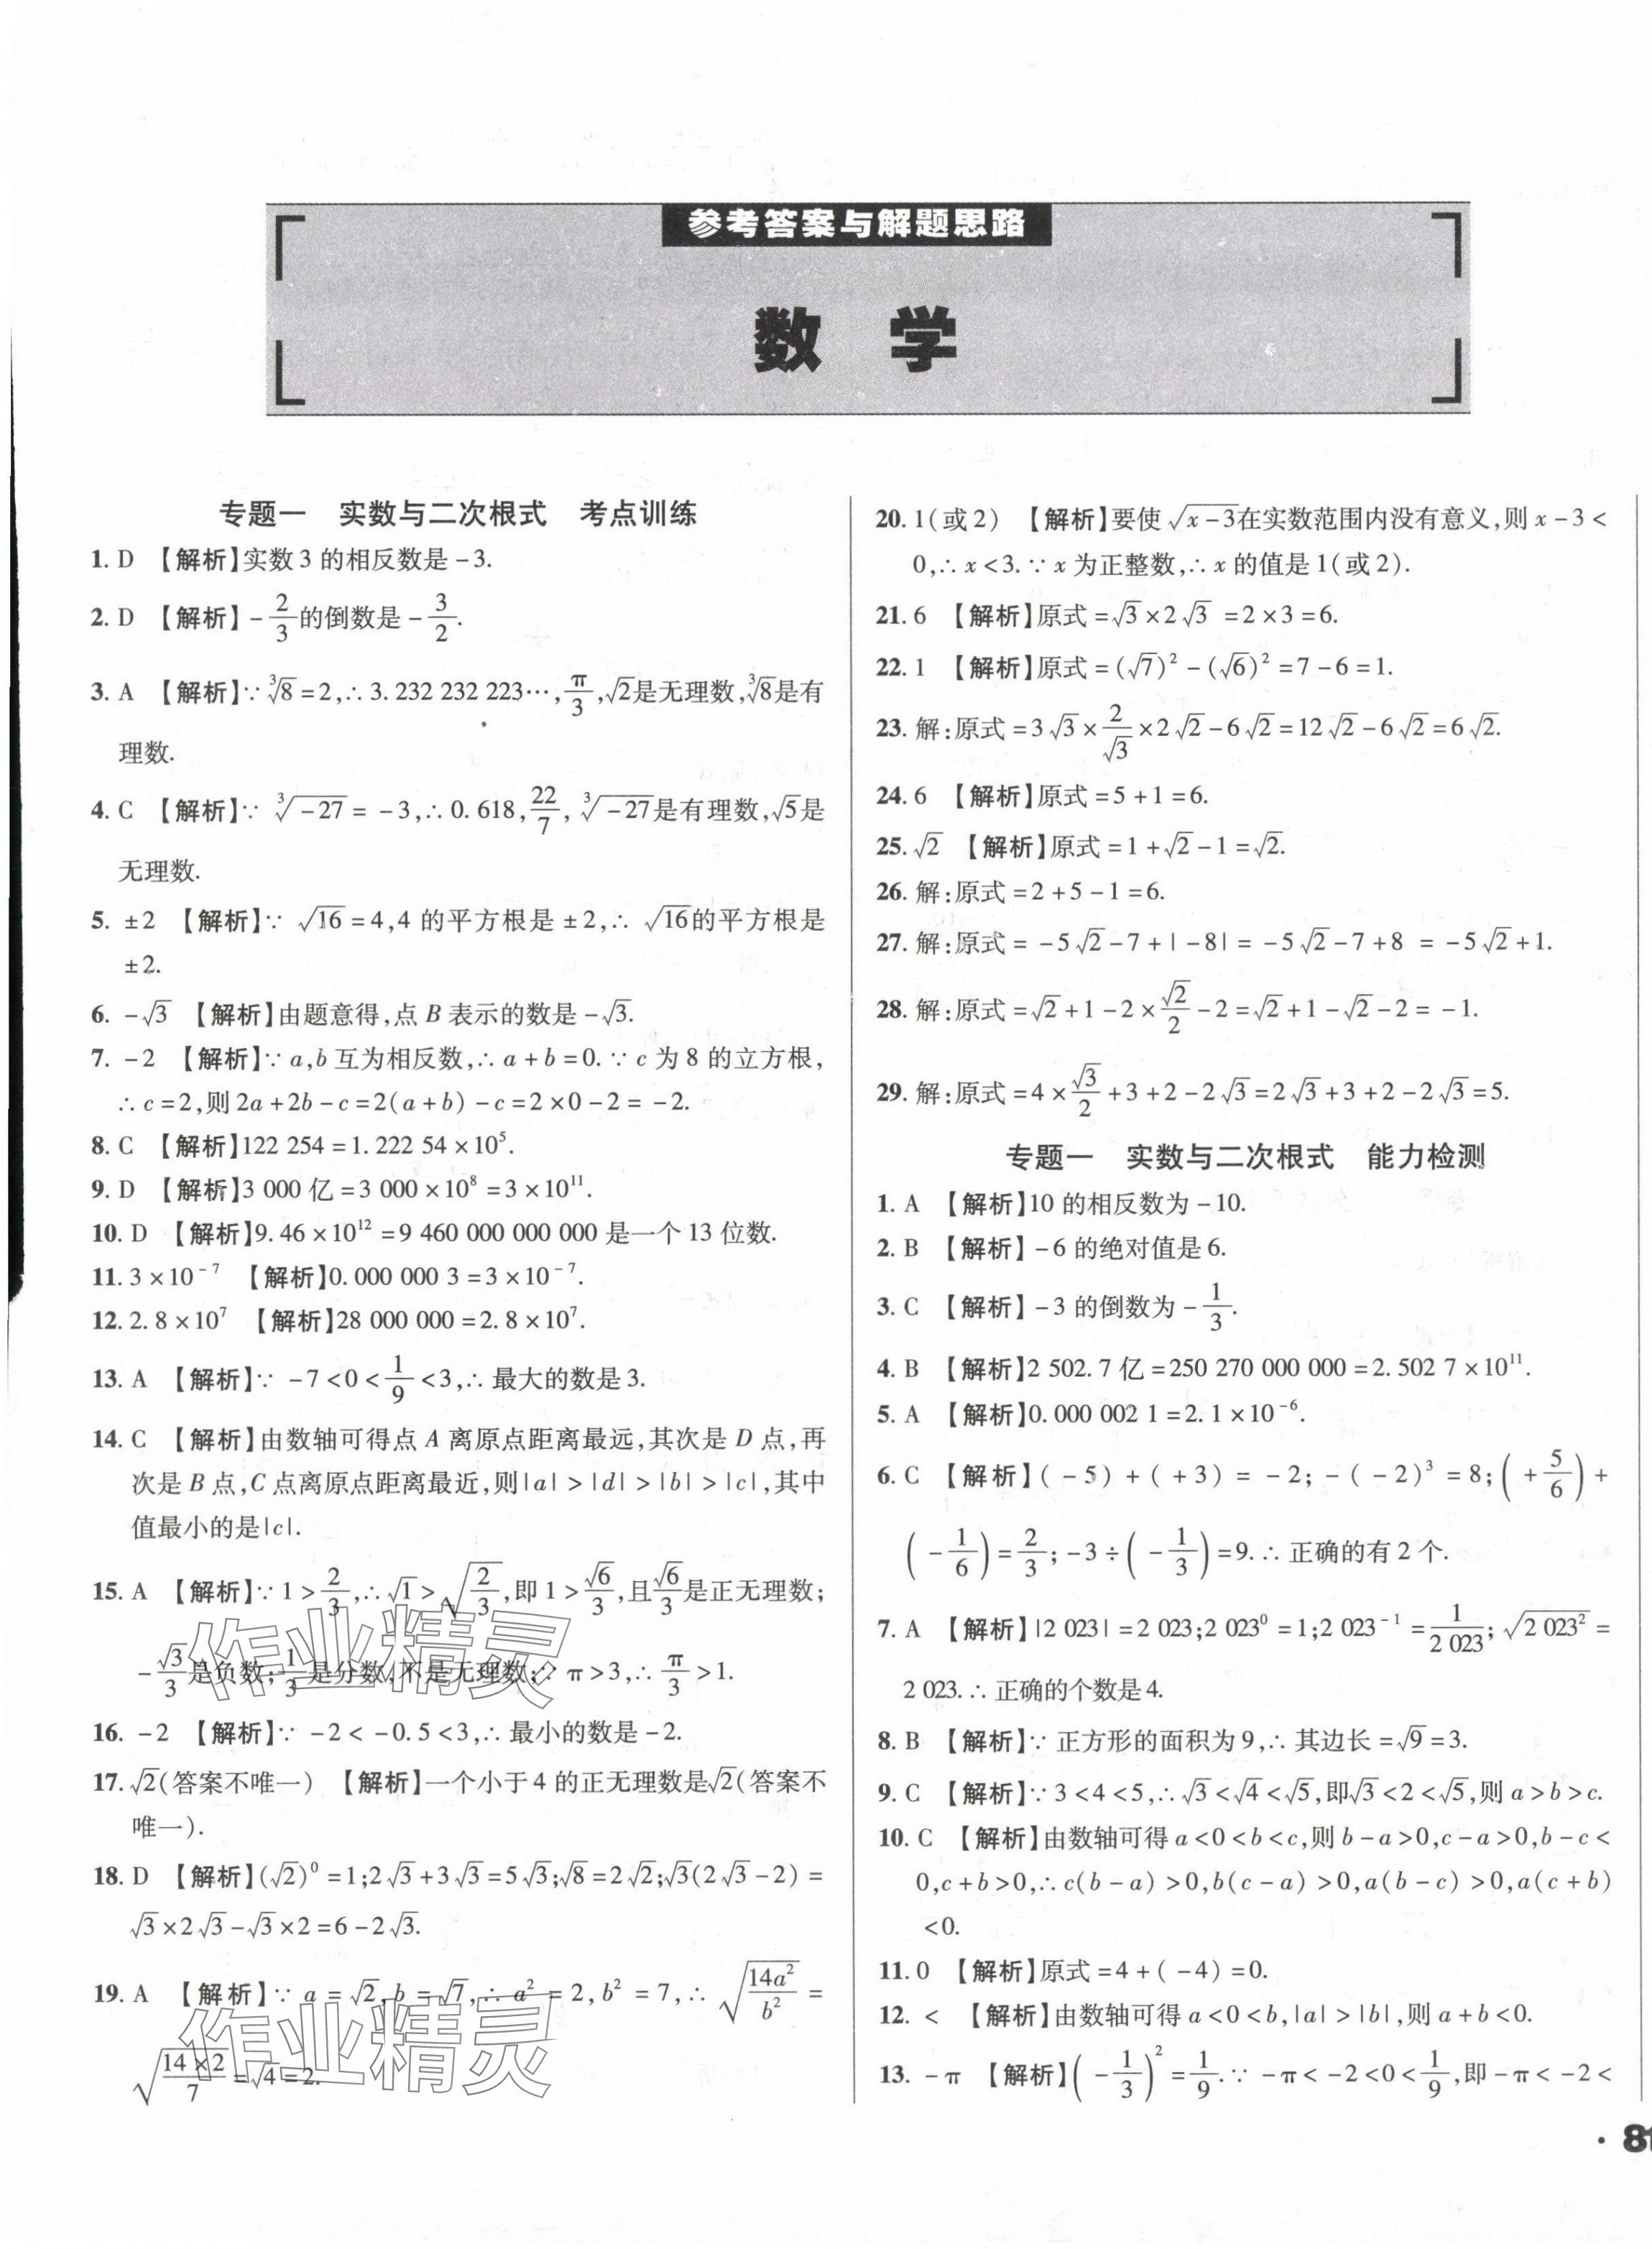 参考答案与解题思路
数 学
专题一 实数与二次根式 考点训练
1. D 【解析】实数 3 的相反数是 -3.
2. D 【解析】-2/3的倒数是-3/2.
3. A 【解析】∵∛8=2,∴3.232 232 223…,π/3,√2是无理数,∛8是有
理数.
4. C 【解析】∵ ∛-27 = -3,∴0.618,22/7, ∛-27是有理数,√5是
无理数.
5. ±2 【解析】∵ √16=4,4 的平方根是 ±2,∴ √16的平方根是
±2.
6. -√3 【解析】由题意得,点 B 表示的数是 -√3.
7. -2 【解析】∵ a,b 互为相反数,∴ a+b=0. ∵ c 为 8 的立方根,
∴c=2,则 2a+2b-c=2(a+b)-c=2×0-2=-2.
8. C 【解析】122 254=1.222 54×10⁵.
9. D 【解析】3 000 亿=3 000×10⁸=3×10¹¹.
10. D 【解析】9.46×10¹²=9 460 000 000 000 是一个 13 位数.
11. 3×10⁻⁷ 【解析】0.000 000 3=3×10⁻⁷.
12. 2.8×10⁷ 【解析】28 000 000=2.8×10⁷.
13. A 【解析】∵ -7<0<1/9<3,∴最大的数是 3.
14. C 【解析】由数轴可得点 A 离原点距离最远,其次是 D 点,再
次是 B 点,C 点离原点距离最近,则|a|>|d|>|b|>|c|,其中
值最小的是|c|.
15. A 【解析】∵1>2/3,∴√1>√(2/3),即 1>√6/3,且√6/3是正无理数;
-√3/3是负数;1/3是分数,不是无理数;∵π>3,∴π/3>1.
16. -2 【解析】∵ -2<-0.5<3,∴最小的数是 -2.
17. √2(答案不唯一) 【解析】一个小于 4 的正无理数是√2(答案不
唯一).
18. D 【解析】(√2)⁰=1;2√3+3√3=5√3;√8=2√2;√3(2√3-2)=
√3×2√3-√3×2=6-2√3.
19. A 【解析】∵ a=√2,b=√7,∴ a²=2,b²=7,∴ √(14a²/b²)=
√(14×2/7)=√4=2.
20. 1(或 2) 【解析】要使 √(x-3)在实数范围内没有意义,则 x-3<
0,∴x<3. ∵x 为正整数,∴x 的值是 1(或 2).
21. 6 【解析】原式=√3×2√3=2×3=6.
22. 1 【解析】原式=(√7)²-(√6)²=7-6=1.
23. 解:原式=3√3×2/√3×2√2-6√2=12√2-6√2=6√2.
24. 6 【解析】原式=5+1=6.
25. √2 【解析】原式=1+√2-1=√2.
26. 解:原式=2+5-1=6.
27. 解:原式= -5√2-7+|-8|= -5√2-7+8= -5√2+1.
28. 解:原式=√2+1-2×√2/2-2=√2+1-√2-2=-1.
29. 解:原式=4×√3/2+3+2-2√3=2√3+3+2-2√3=5.
专题一 实数与二次根式 能力检测
1. A 【解析】10 的相反数为 -10.
2. B 【解析】-6 的绝对值是 6.
3. C 【解析】-3 的倒数为 -1/3.
4. B 【解析】2 502.7 亿=250 270 000 000=2.502 7×10¹¹.
5. A 【解析】0.000 002 1=2.1×10⁻⁶.
6. C 【解析】(-5)+(+3)=-2;-(-2)³=8;(+5/6)+
(-1/6)=2/3;-3÷(-1/3)=9.∴正确的有 2 个.
7. A 【解析】|2 023|=2 023;2 023⁰=1;2 023⁻¹=1/2 023;√(2 023²)=
2 023.∴正确的个数是 4.
8. B 【解析】∵ 正方形的面积为 9,∴其边长=√9=3.
9. C 【解析】∵3<4<5,∴√3<√4<√5,即√3<2<√5,则 a>b>c.
10. C 【解析】由数轴可得 a<0<b<c,则 b-a>0,c-a>0,b-c<
0,c+b>0,∴c(b-a)>0,b(c-a)>0,a(b-c)>0,a(c+b)
<0.
11. 0 【解析】原式=4+(-4)=0.
12. < 【解析】由数轴可得 a<0<b,|a|>|b|,则 a+b<0.
13. -π 【解析】(-1/3)²=1/9.∵ -π<-2<0<1/9,即 -π<-2<
作业精灵
作业精灵
· 81